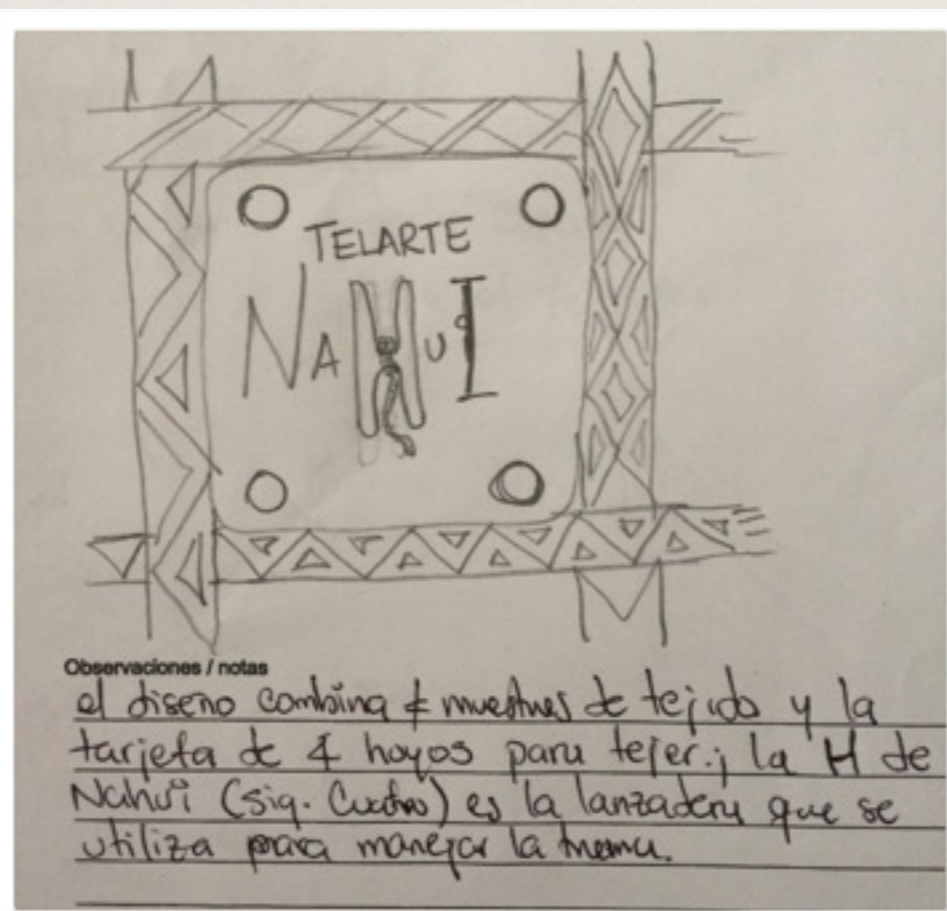 TELARTE
NAHUI
Observaciones / notas
el diseño combina 4 muestras de tejido y la
tarjeta de 4 hoyos para tejer.; la H de
Nahui (sig. Cuatro) es la lanzadera que se
utiliza para manejar la trama.